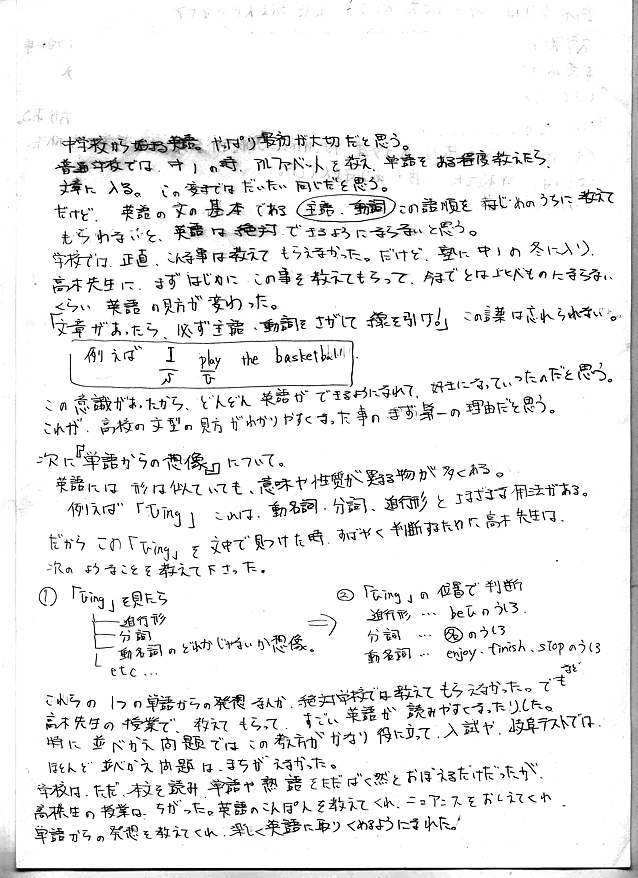 中学校から始まる英語。やっぱり最初が大切だと思う。
普通学校では、中1の時、アルファベットを教え、単語をある程度教えたら、
文章に入る。この学校ではだいたい同じだと思う。
だけど、英語の文の基本である 主語、動詞 この語順をはじめのうちに教えて
もらわないと、英語は絶対できるようにならないと思う。
学校では、正直、こんな事は教えてもらえなかった。だけど、塾に中1の冬に入り、
高木先生に、まずはじめにこの事を教えてもらって、今までとは比べものにならない
くらい英語の見方が変わった。
「文章があったら、必ず主語、動詞をさがして線を引け!」この言葉は忘れられない。
例えば I play the basketball.
S V
この意識があったから、どんどん英語ができるようになれて、好きになっていったのだと思う。
これが、高校の文型の見方がわかりやすくなった事のまず第一の理由だと思う。
次に『単語からの想像』について。
英語には形は似ていても、意味や性質が異る物が多くある。
例えば「Ving」これは、動名詞、分詞、進行形とさまざまな用法がある。
だからこの「Ving」を文中で見つけた時、すばやく判断するために高木先生は、
次のようなことを教えて下さった。
① 「Ving」を見たら
進行形
分詞
動名詞のどれかじゃないか想像。
etc...
⇒
② 「Ving」の位置で判断
進行形 … beVのうしろ
分詞 … 名のうしろ
動名詞 … enjoy、finish、stopのうしろ
など
これらの1つの単語からの発想なんか、絶対学校では教えてもらえなかった。でも
高木先生の授業で、教えてもらって、すごい英語が読みやすくなったりした。
特に並べかえ問題ではこの考え方がかなり役に立って、入試や、岐阜テストでは、
ほとんど並べかえ問題は、まちがえなかった。
学校は、ただ、本文を読み、単語や熟語をただばく然とおぼえるだけだったが、
高木先生の授業は、ちがった。英語のこんぽんを教えてくれ、ニュアンスをおしえてくれ、
単語からの発想を教えてくれ、楽しく英語に取りくめるようになれた!